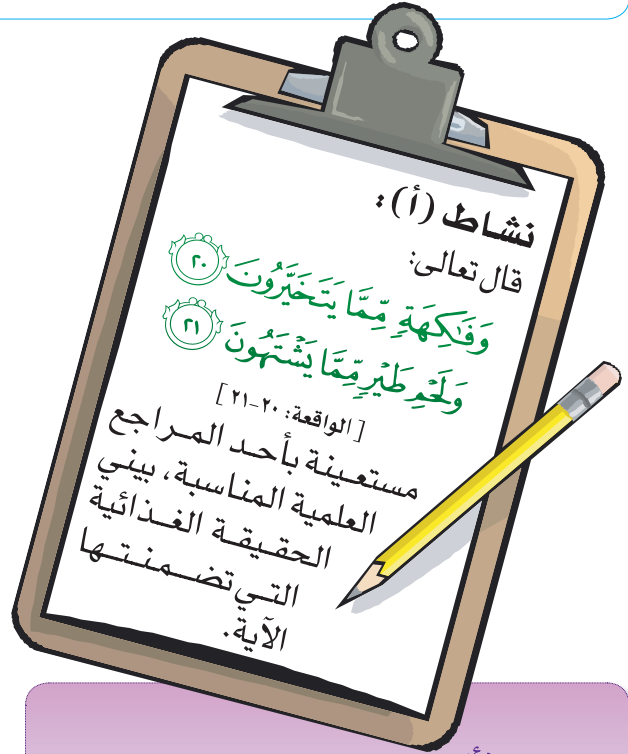 نشاط (أ) :
قال تعالى:
وَفَـٰكِهَةٍ مِّمَّا يَتَخَيَّرُونَ ٢٠
وَلَحْمِ طَيْرٍ مِّمَّا يَشْتَهُونَ ٢١
[ الواقعة: ٢٠-٢١ ]
مستعينة بأحد المراجع
العلمية المناسبة، بيني
الحقيقة الغذائية
التي تضمنتها
الآية.